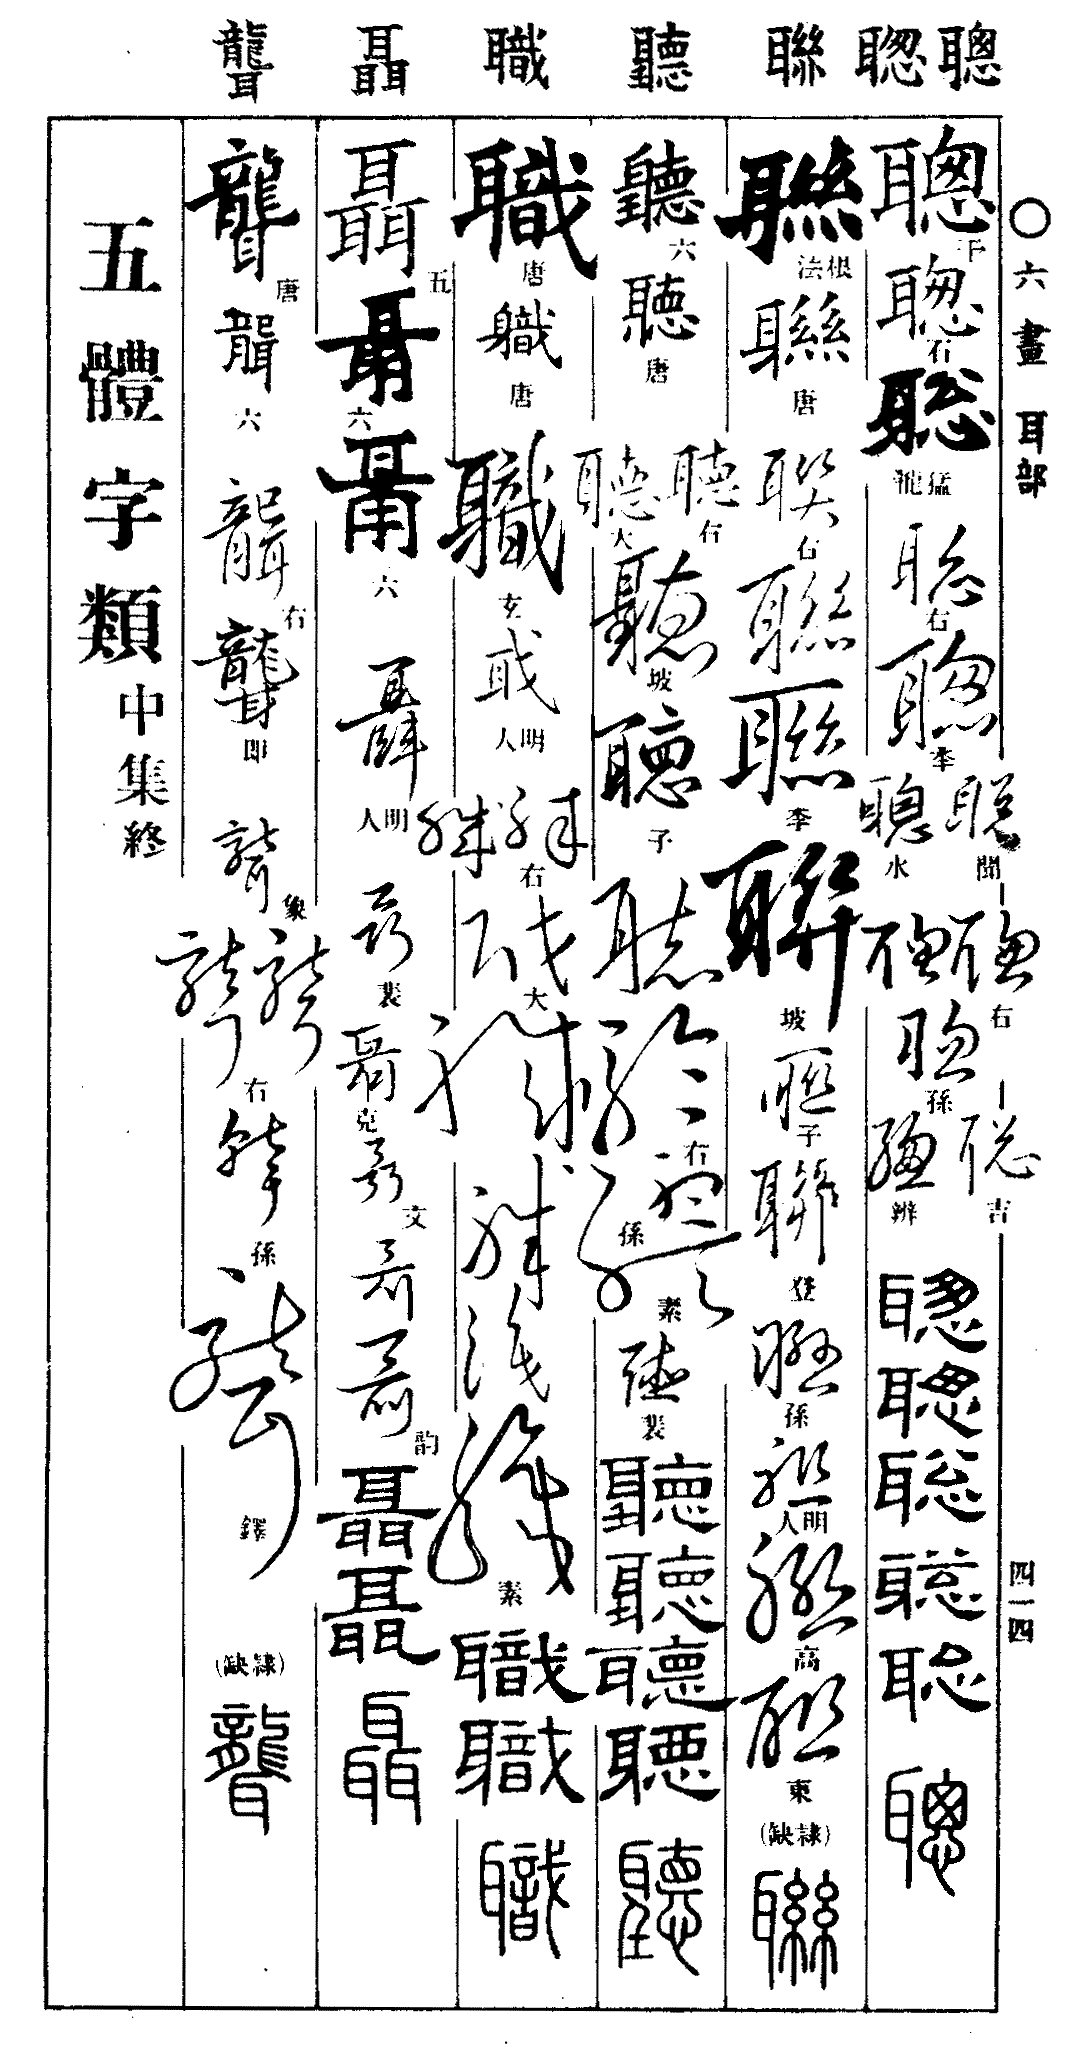 聰 聦 聯 聽 職 聶 聾
〇六畫 耳部
四一四
聰 干
聰 右
聡 龍猛
聡 右
聰 李
聡 聞
聰 水
聰 聰 右
聡 孫
聡 吉
聰 辨
聰 聰 聡 聰 聡
聰
聯 根法
聯 唐
聯 右
聯
聯 李
聯 坡
聯 子
聯 登
聯 孫
聯 明人
聯 高
聯 東
(隷缺)
聯
聽 六
聽 唐
聽 右
聽 大
聽 坡
聽 子
聽
聽 右
聽 孫
聽 素
聽 裴
聽 聽 聽 聽
聽
職 唐
職 唐
職 玄
職 明人
職 職 右
職 大
職
職
職
職 素
職 職
職
聶 五
聶 六
聶 六
聶 明人
聶 裴
聶 克
聶 文
聶
聶 韵
聶 聶
聶
聾 唐
聾 六
聾 右
聾 即
聾 象
聾 聾 右
聾 孫
聾 鐸
(隷缺)
聾
五體字類 中集終